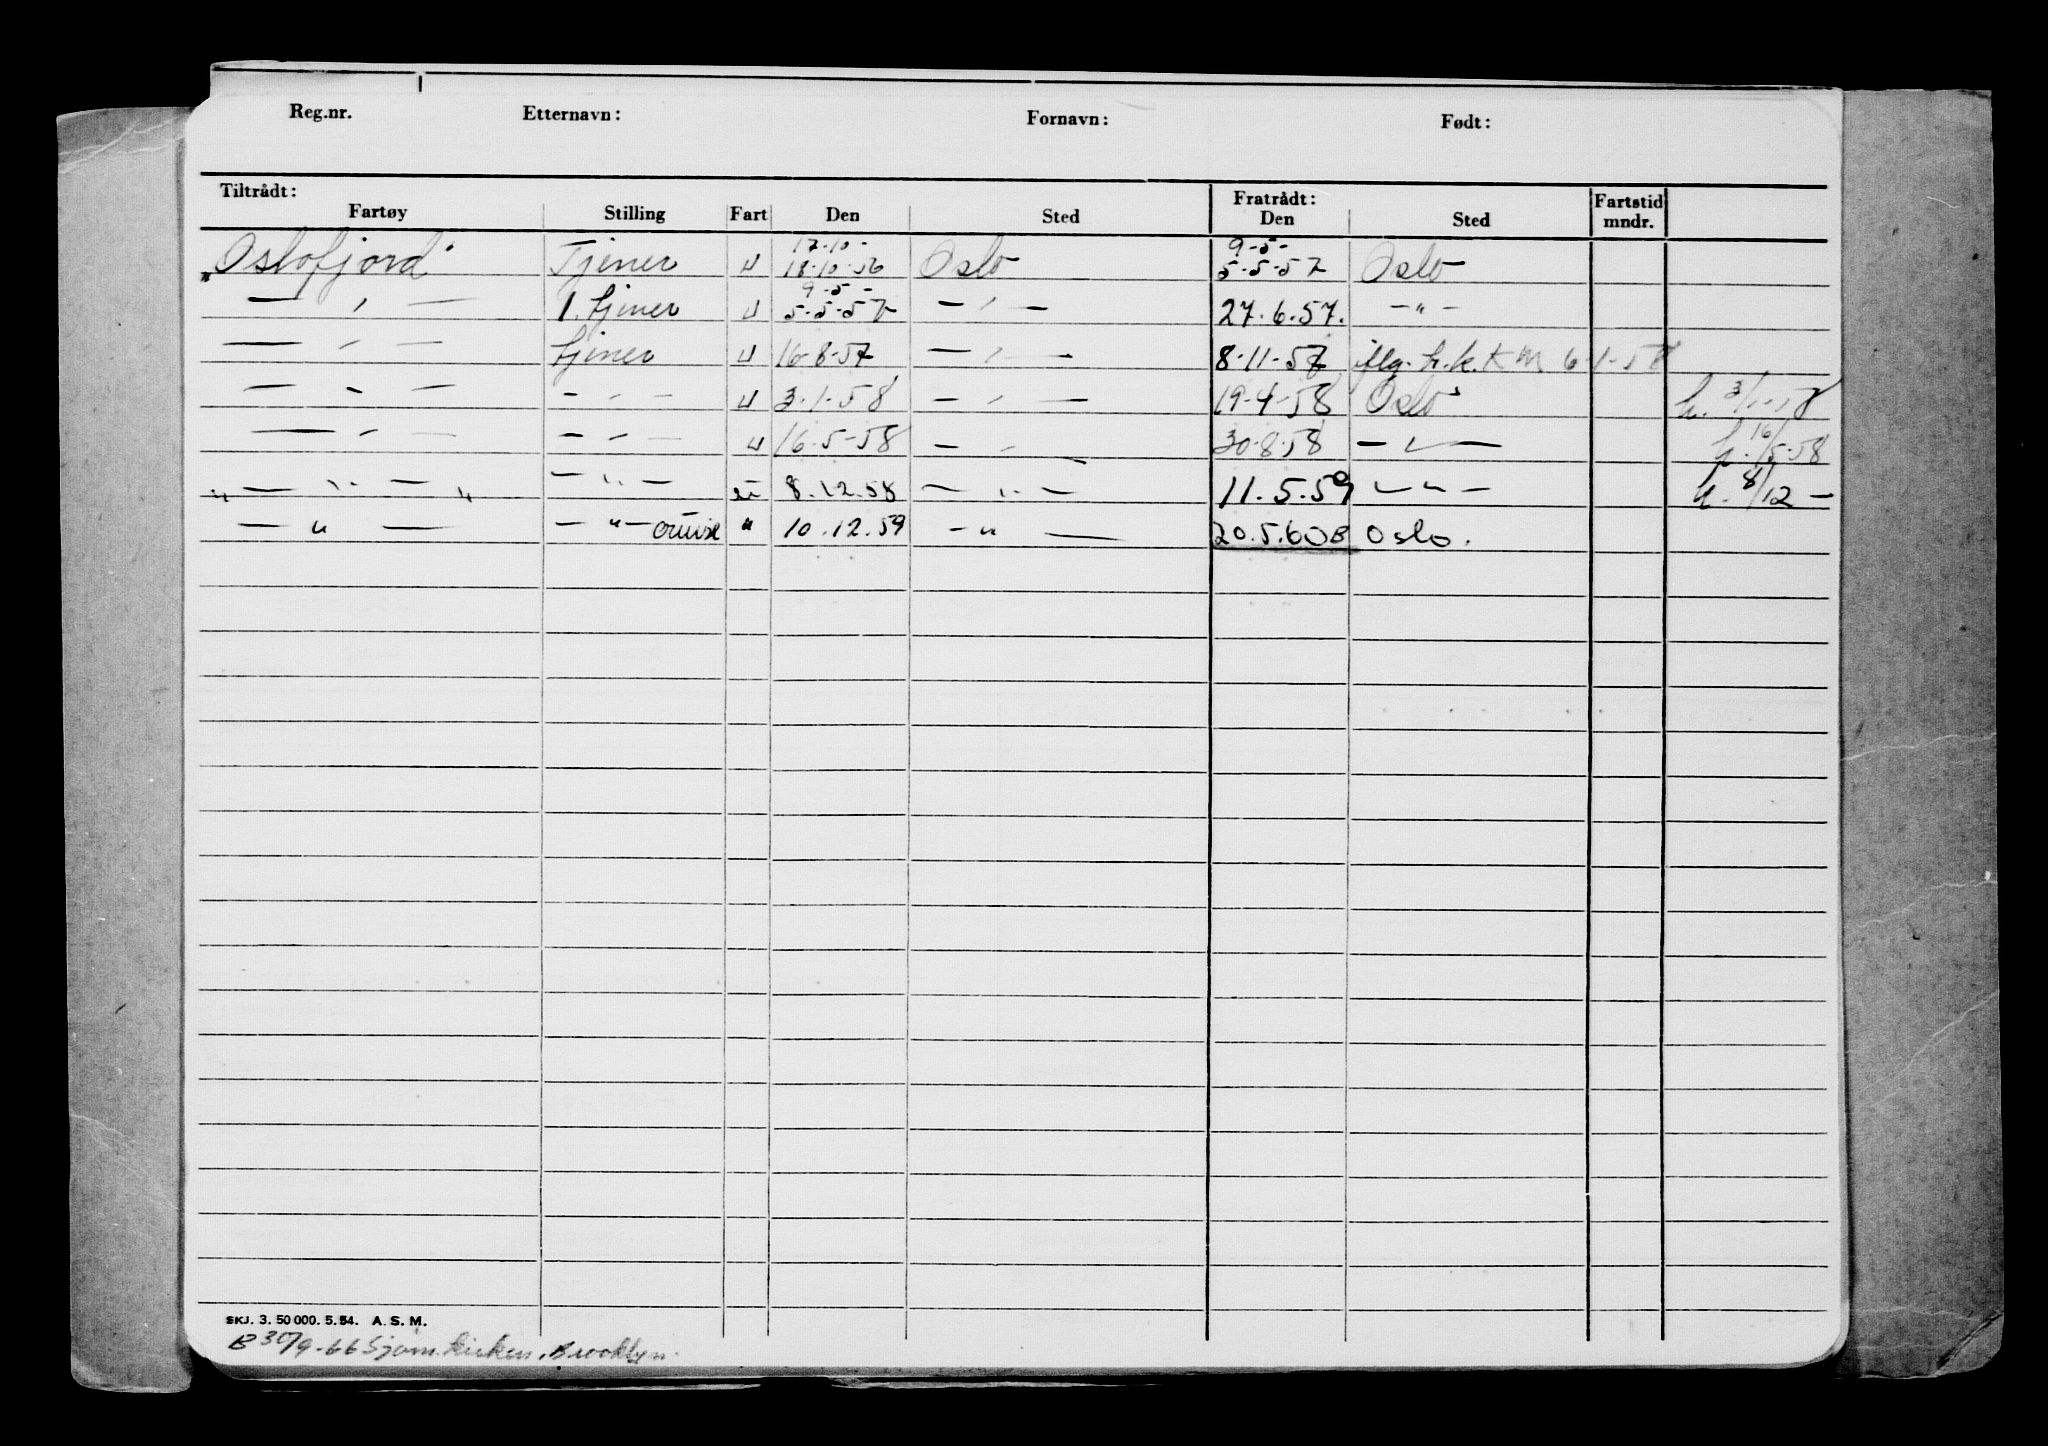 Reg.nr. Etternavn: Fornavn: Født:
Tiltrådt: Fratrådt: Fartstid
Fartøy Stilling Fart Den Sted Den Sted mndr.
17-10- 9-5-
"Oslofjord" Tjener u 18-10-56 Oslo 5-5-57 Oslo
9-5-
— " — 1. tjener u 5-5-57 — " — 27.6.57. — " —
— " — tjener u 16-8-57 — " — 8-11-57 iflg. h.k. KM 6-1-58
— " — — " — u 3-1-58 — " — 19-4-58 Oslo h. 3/1-58
— " — — " — u 16-5-58 — " — 30-8-58 — " — h. 16/5-58
" — " — " — " — 8.12.58 — " — 11.5.59 — " — h. 8/12 —
— " — — " — cruise " 10.12.59 — " — 20.5.60 B Oslo.
SKJ. 3. 50 000. 5. 54. A. S. M.
B 30/9-66 Sjøm.kirken, Brooklyn.